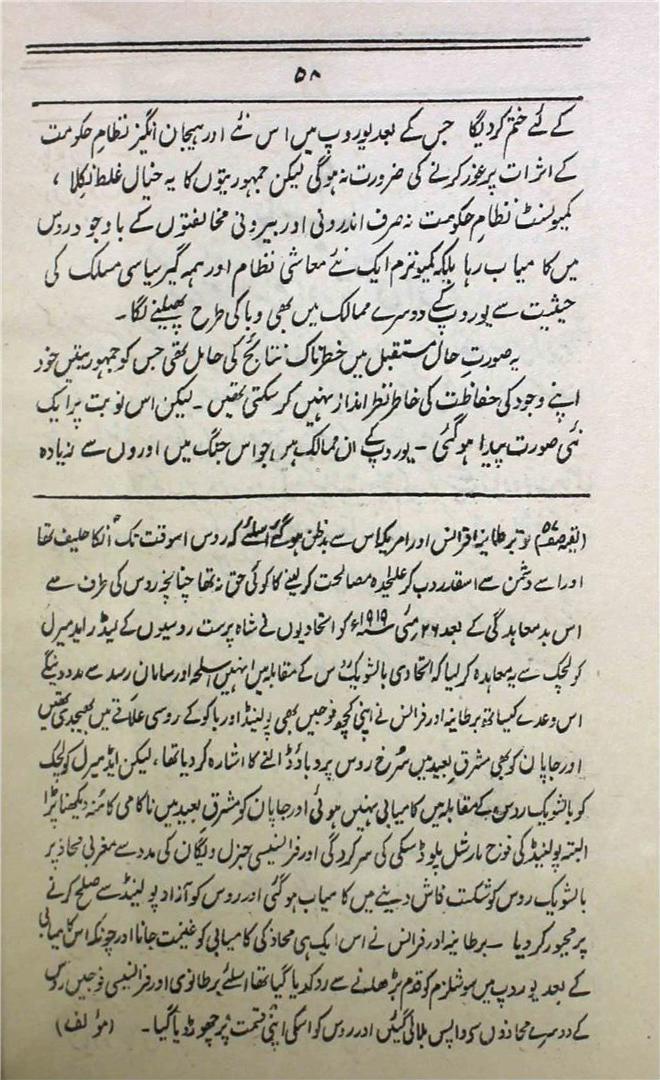 ۵۸
کے لئے ختم کر دیگا جس کے بعد یوروپ میں اس نئے اور ہیجان انگیز نظامِ حکومت
کے اثرات پر غور کرنے کی ضرورت نہ ہوگی لیکن جمہوریتوں کا یہ خیال غلط نکلا ،
کمیونسٹ نظامِ حکومت نہ صرف اندرونی اور بیرونی مخالفتوں کے باوجود روس
میں کامیاب رہا بلکہ کمیونزم ایک نئے معاشی نظام اور ہمہ گیر سیاسی مسلک کی
حیثیت سے یوروپ کے دوسرے ممالک میں بھی وبا کی طرح پھیلنے لگا۔
یہ صورتِ حال مستقبل میں خطرناک نتائج کی حامل تھی جس کو جمہوریتیں خود
اپنے وجود کی حفاظت کی خاطر نظر انداز نہیں کر سکتی تھیں ۔ لیکن اس نوبت پر ایک
نئی صورت پیدا ہوگئی ۔ یوروپ کے ان ممالک میں جو اس جنگ میں اوروں سے زیادہ
(بقیہ صفحہ ۵۷) تو برطانیہ، فرانس اور امریکہ اس سے بدظن ہوگئے اسلئے کہ روس اسوقت تک انکا حلیف تھا
اور اسے دشمن سے اسقدر دب کر علیٰحدہ مصالحت کر لینے کا کوئی حق نہ تھا چنانچہ روس کی طرف سے
اس بدمعاہدگی کے بعد ۲۶ مئی ۱۹۱۹ء کو اتحادیوں نے شاہ پرست روسیوں کے لیڈر ایڈمیرل
کولچک سے یہ معاہدہ کر لیا کہ اتحادی بالشویک کے مقابلہ میں انہیں اسلحہ اور سامان رسد سے مدد دینگے
اس وعدے کیساتھ برطانیہ اور فرانس نے اپنی کچھ فوجیں بھی پولینڈ اور باکو کے روسی علاقے میں بھیجدی تھیں
اور جاپان کو بھی مشرقِ بعید میں سُرخ روس پر دباؤ ڈالنے کا اشارہ کر دیا تھا، لیکن ایڈمیرل کولچک
کو بالشویک روس کے مقابلہ میں کامیابی نہیں ہوئی اور جاپان کو مشرقِ بعید میں ناکامی کا منہ دیکھنا پڑا
البتہ پولینڈ کی فوج مارشل پلوڈسکی کی سرکردگی اور فرانسیسی جنرل ویگان کی مدد سے مغربی محاذ پر
بالشویک روس کو شکست فاش دینے میں کامیاب ہوگئی اور روس کو آزاد پولینڈ سے صلح کرنے
پر مجبور کر دیا ۔ برطانیہ اور فرانس نے اس ایک ہی محاذ کی کامیابی کو غنیمت جانا اور چونکہ اس کامیابی
کے بعد یوروپ میں سوشلزم کو قدم بڑھانے سے روکدیا گیا تھا اسلئے برطانوی اور فرانسیسی فوجیں روس
کے دوسرے محاذوں سے واپس بلالی گئیں اور روس کو اسکی اپنی قسمت پر چھوڑ دیا گیا۔ (مؤلف)